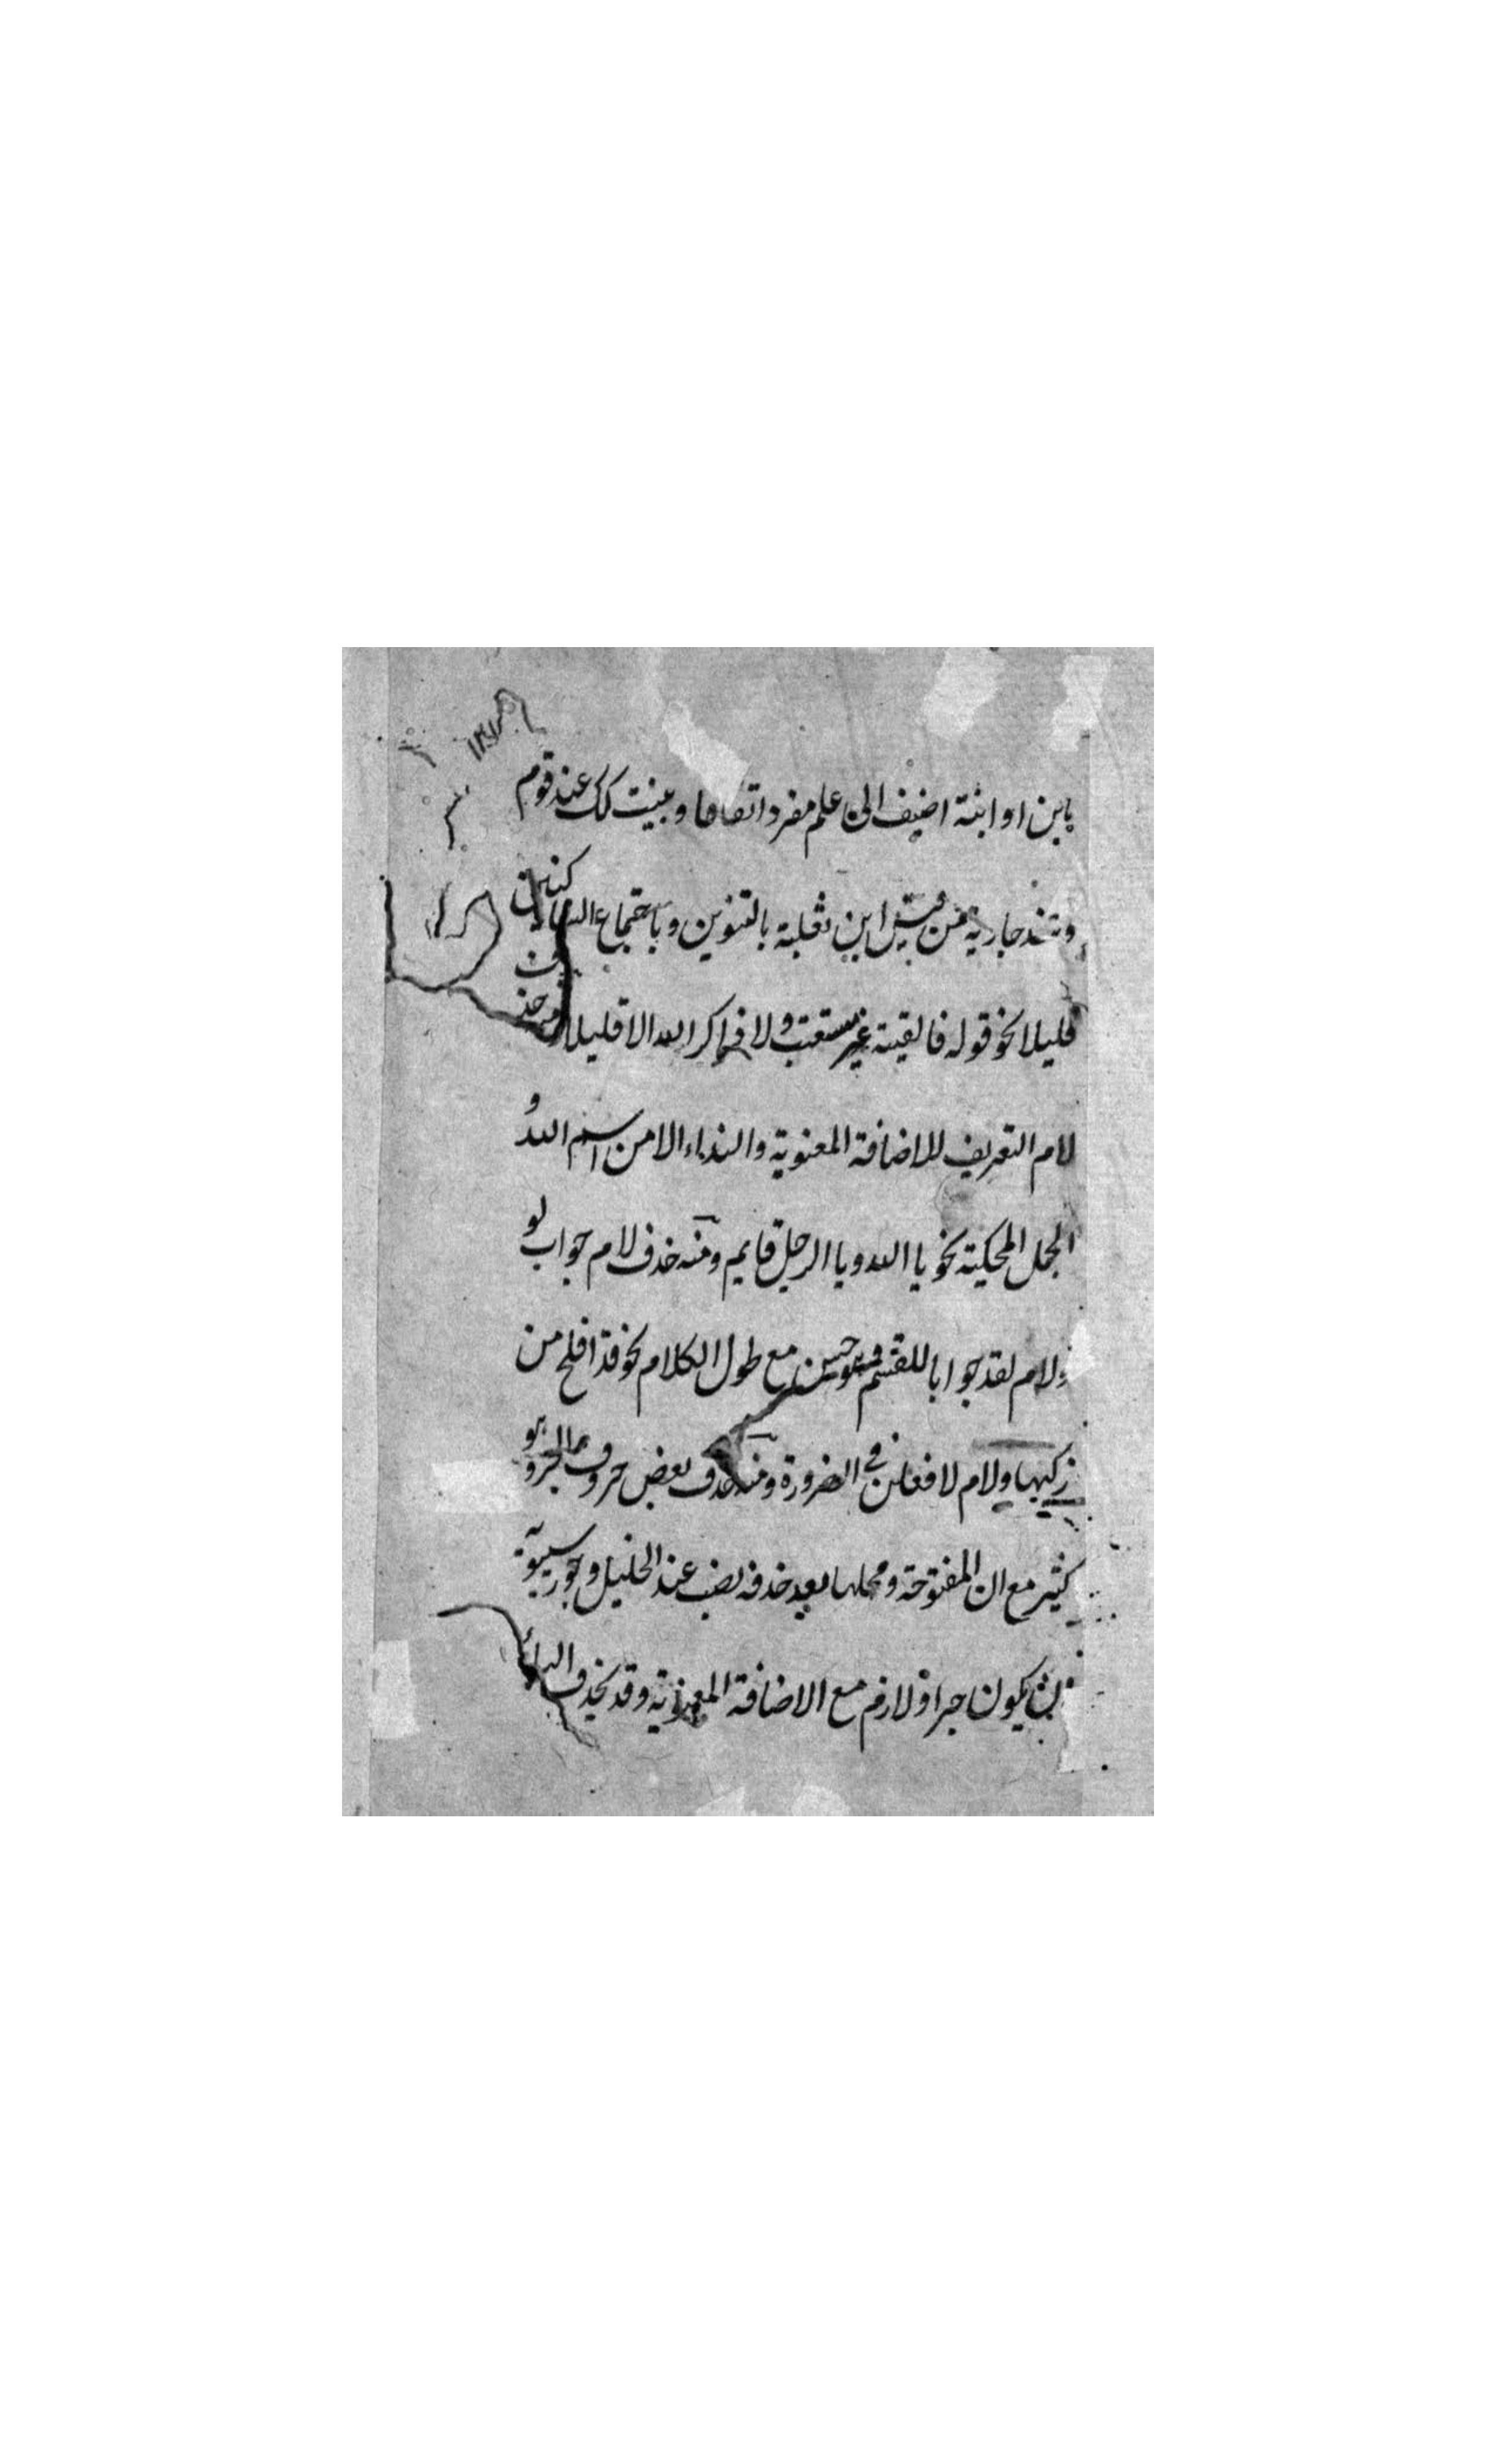 بابن او ابنة اضيف الى علم مفرد اتفاقا وببنت كك عند قوم
وشذ جارية من قيس ابن ثعلبة بالتنوين وباجتماع الساكنين
قليلا نحو قوله فالفيته غير مستعتب ولا ذاكر الله الا قليلا ومنه حذف
لام التعريف للاضافة المعنوية والنداء الا من اسم الله و
الجمل المحكية نحو يا الله ويا الرجل قايم ومنه حذف لام جواب لو
ولام لقد جوابا للقسم وهو حسن مع طول الكلام نحو قد افلح من
زكيها ولام لافعلن في الضرورة ومنه حذف بعض حروف الجر وهو
كثير مع ان المفتوحة ومحلها بعد حذفه نصب عند الخليل وجوز سيبويه
ان يكون جرا ولازم مع الاضافة المعنوية وقد يحذف الباء